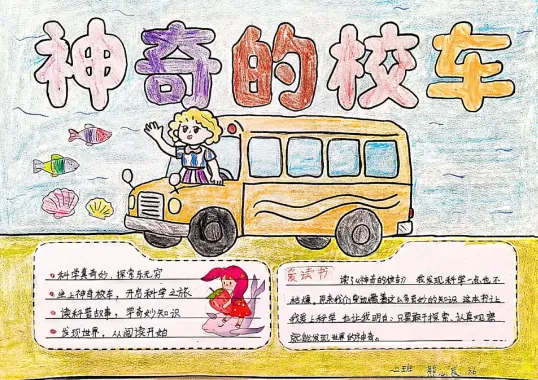 神奇的校车
科学真奇妙，探索乐无穷
坐上神奇校车，开启科学之旅
读科普故事，学奇妙知识
发现世界，从阅读开始
爱读书
读了《神奇的校车》我发现科学一点也不
枯燥，原来我们身边藏着这么多奇妙的知识 这本书让
我爱上科学 也让我明白：只要敢于探索、认真观察
就能发现世界的神奇。
二班